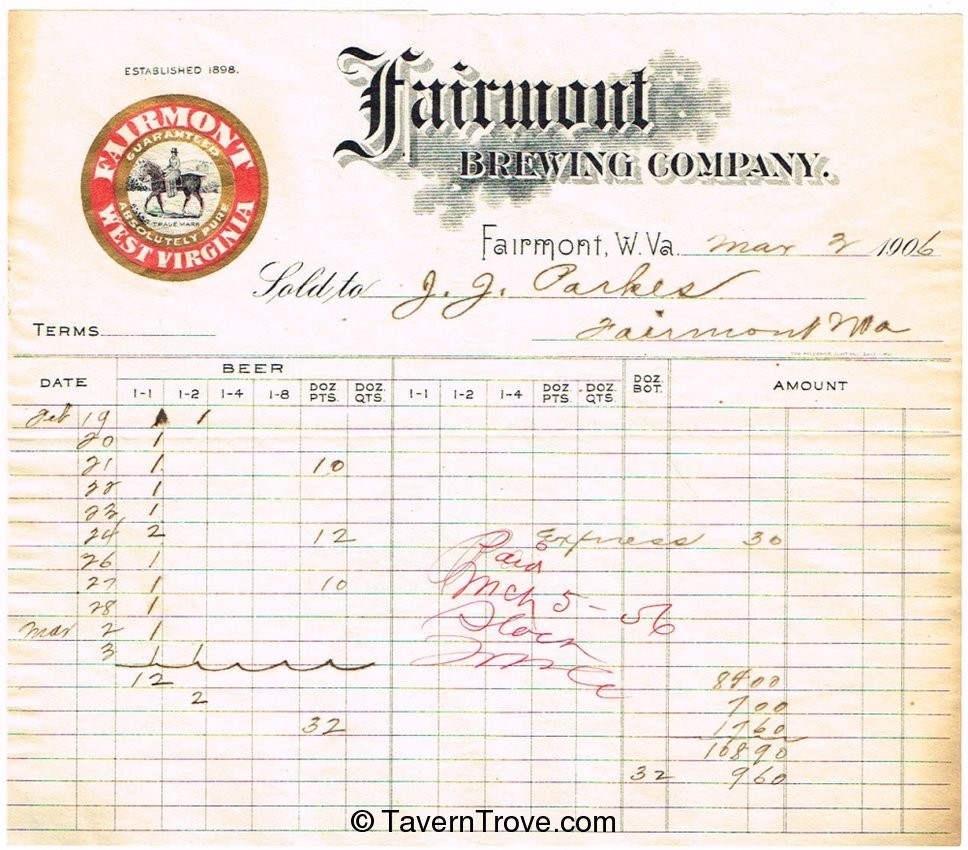 ESTABLISHED 1898.
Fairmont
BREWING COMPANY.
FAIRMONT
GUARANTEED
TRADE MARK
ABSOLUTELY PURE
WEST VIRGINIA
Fairmont, W.Va. Mar 3 1906
Sold to J. J. Parkes
TERMS Fairmont W Va
DATE BEER DOZ. BOT. AMOUNT
1-1 1-2 1-4 1-8 DOZ. PTS. DOZ. QTS. 1-1 1-2 1-4 DOZ. PTS. DOZ. QTS.
Feb 19 1 1
20 1
21 1 10
22 1
23 1
24 2 12 Express 30
26 1
27 1 10
28 1
Mar 2 1
3 1 1
Paid
Mch 5-06
12 8400
2 700
32 1760
10890
32 960
© TavernTrove.com